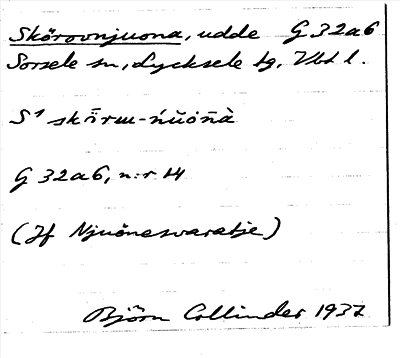 Skörovnjuona, udde G 32a6
Sorsele sn, Lycksele tg, Vbt l.
S¹
G 32a6, n:r 14
(Jf Njuonesvaratje)
Björn Collinder 1937